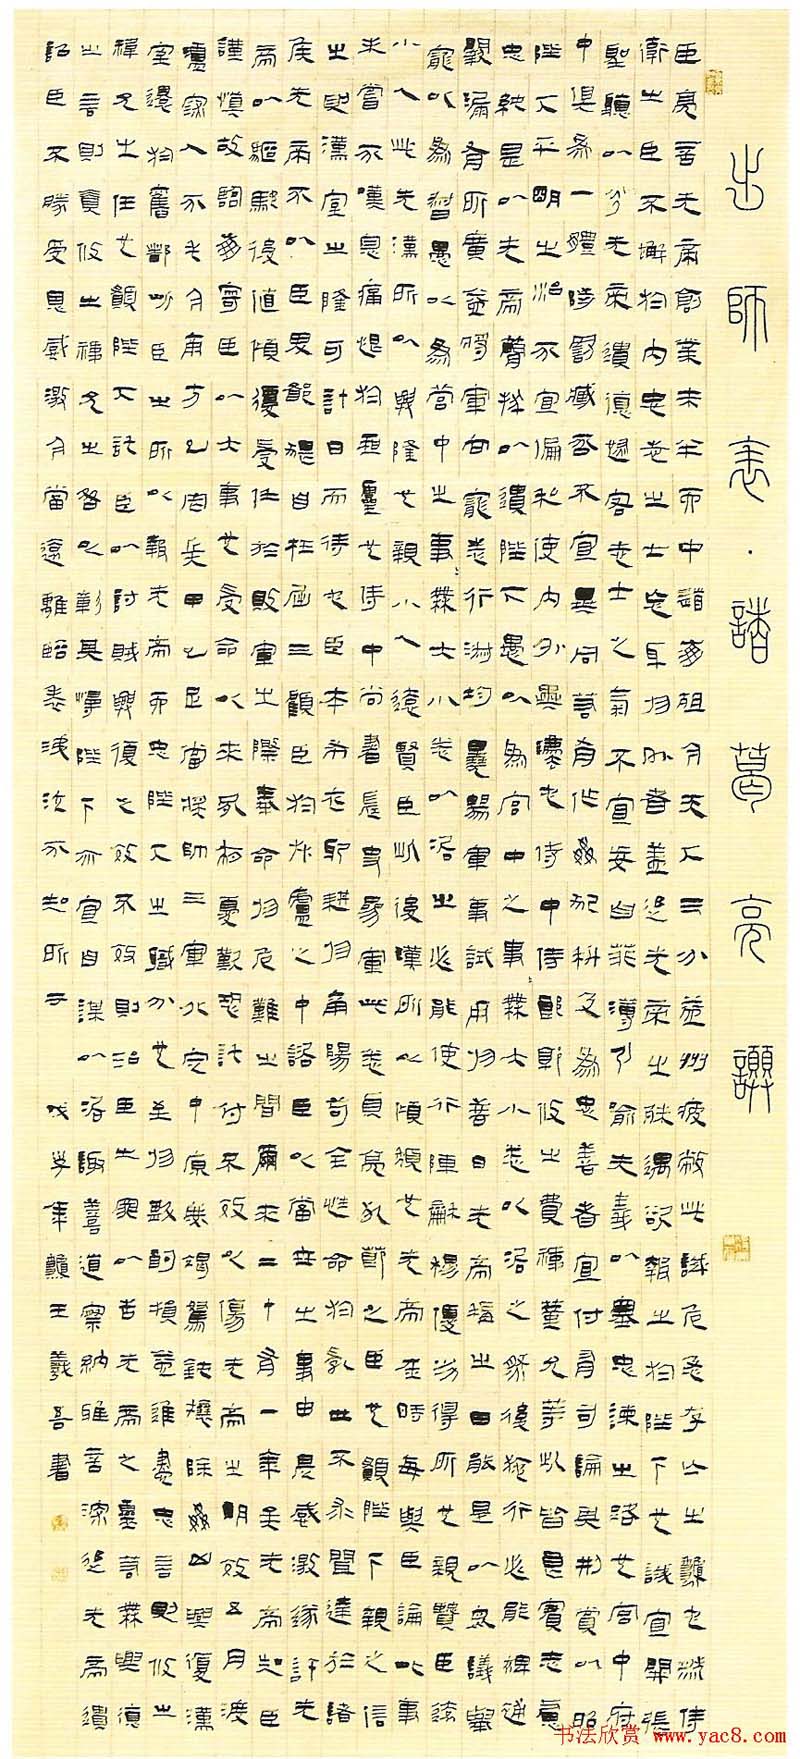 出師表·諸葛亮譔
臣亮言先帝創業未半而中道崩殂今天下三分益州疲敝此誠危急存亡之龝也然侍
衛之臣不懈於內忠志之士忘身於外者蓋追先帝之殊遇欲報之於陛下也誠宜開張
聖聽以光先帝遺德恢宏志士之氣不宜妄自菲薄引喻失義以塞忠諫之路也宮中府
中俱為一體陟罰臧否不宜異同若有作姦犯科及為忠善者宜付有司論其刑賞以昭
陛下平明之治不宜偏私使內外異法也侍中侍郎郭攸之費禕董允等此皆良實志慮
忠純是以先帝簡拔以遺陛下愚以為宮中之事無大小悉以咨之然後施行必能裨補
闕漏有所廣益將軍向寵性行淑均曉暢軍事試用於昔日先帝稱之曰能是以眾議舉
寵以為督愚以為營中之事無大小悉以咨之必能使行陣和穆優劣得所也親賢臣遠
小人此先漢所以興隆也親小人遠賢臣此後漢所以傾頹也先帝在時每與臣論此事
未嘗不嘆息痛恨於桓靈也侍中尚書長史參軍此悉貞亮死節之臣也願陛下親之信
之則漢室之隆可計日而待也臣本布衣躬耕於南陽苟全性命於亂世不求聞達於諸
侯先帝不以臣卑鄙猥自枉屈三顧臣於草廬之中諮臣以當世之事由是感激遂許先
帝以驅馳後值傾覆受任於敗軍之際奉命於危難之間爾來二十有一年矣先帝知臣
謹慎故臨崩寄臣以大事也受命以來夙夜憂歎恐託付不效以傷先帝之明故五月渡
瀘深入不毛今南方已定兵甲已足當獎帥三軍北定中原庶竭駑鈍攘除姦凶興復漢
室還於舊都此臣之所以報先帝而忠陛下之職分也至於斟酌損益進盡忠言則攸之
禕允之任也願陛下託臣以討賊興復之效不效則治臣之罪以告先帝之靈若無興德
之言則責攸之禕允之咎以彰其慢陛下亦宜自謀以咨諏善道察納雅言深追先帝遺
詔臣不勝受恩感激今當遠離臨表涕泣不知所云 戊子年龝王羲吾書
书法欣赏 www.yac8.com